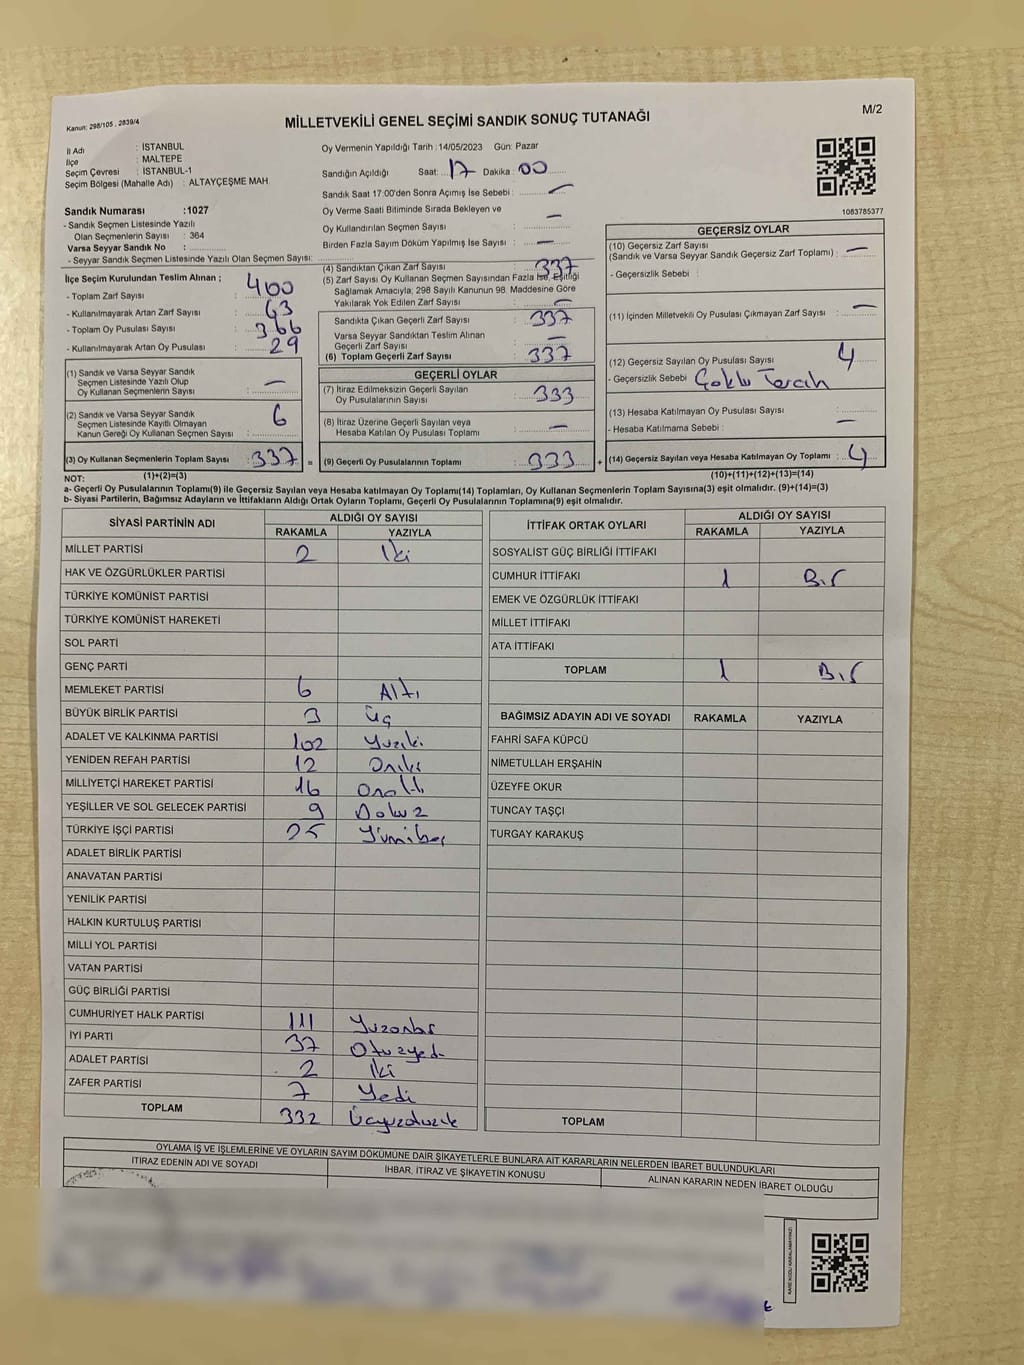 Kanun: 298/105 , 2839/4
M/2
MİLLETVEKİLİ GENEL SEÇİMİ SANDIK SONUÇ TUTANAĞI
İl Adı : İSTANBUL
İlçe : MALTEPE
Seçim Çevresi : İSTANBUL-1
Seçim Bölgesi (Mahalle Adı) : ALTAYÇEŞME MAH.
Sandık Numarası :1027
- Sandık Seçmen Listesinde Yazılı
Olan Seçmenlerin Sayısı : 364
Varsa Seyyar Sandık No :
- Seyyar Sandık Seçmen Listesinde Yazılı Olan Seçmen Sayısı:
Oy Vermenin Yapıldığı Tarih :14/05/2023 Gün: Pazar
Sandığın Açıldığı Saat: 17 Dakika: 00
Sandık Saat 17:00'den Sonra Açımış İse Sebebi : —
Oy Verme Saati Bitiminde Sırada Bekleyen ve
Oy Kullandırılan Seçmen Sayısı : —
Birden Fazla Sayım Döküm Yapılmış İse Sayısı : —
1083785377
İlçe Seçim Kurulundan Teslim Alınan ;
- Toplam Zarf Sayısı : 400
- Kullanılmayarak Artan Zarf Sayısı : 63
- Toplam Oy Pusulası Sayısı : 366
- Kullanılmayarak Artan Oy Pusulası : 29
(1) Sandık ve Varsa Seyyar Sandık
Seçmen Listesinde Yazılı Olup
Oy Kullanan Seçmenlerin Sayısı : —
(2) Sandık ve Varsa Seyyar Sandık
Seçmen Listesinde Kayıtlı Olmayan
Kanun Gereği Oy Kullanan Seçmen Sayısı : 6
(3) Oy Kullanan Seçmenlerin Toplam Sayısı : 337
(1)+(2)=(3)
(4) Sandıktan Çıkan Zarf Sayısı : 337
(5) Zarf Sayısı Oy Kullanan Seçmen Sayısından Fazla İse, Eşitliği
Sağlamak Amacıyla, 298 Sayılı Kanunun 98. Maddesine Göre
Yakılarak Yok Edilen Zarf Sayısı : —
Sandıkta Çıkan Geçerli Zarf Sayısı : 337
Varsa Seyyar Sandıktan Teslim Alınan
Geçerli Zarf Sayısı : —
(6) Toplam Geçerli Zarf Sayısı : 337
GEÇERLİ OYLAR
(7) İtiraz Edilmeksizin Geçerli Sayılan
Oy Pusulalarının Sayısı : 333
(8) İtiraz Üzerine Geçerli Sayılan veya
Hesaba Katılan Oy Pusulası Toplamı : —
= (9) Geçerli Oy Pusulalarının Toplamı : 333 +
GEÇERSİZ OYLAR
(10) Geçersiz Zarf Sayısı
(Sandık ve Varsa Seyyar Sandık Geçersiz Zarf Toplamı) : —
- Geçersizlik Sebebi :
(11) İçinden Milletvekili Oy Pusulası Çıkmayan Zarf Sayısı : —
(12) Geçersiz Sayılan Oy Pusulası Sayısı : 4
- Geçersizlik Sebebi : Çoklu Tercih
(13) Hesaba Katılmayan Oy Pusulası Sayısı :
- Hesaba Katılmama Sebebi : —
(14) Geçersiz Sayılan veya Hesaba Katılmayan Oy Toplamı : 4
(10)+(11)+(12)+(13)=(14)
NOT:
a- Geçerli Oy Pusulalarının Toplamı(9) ile Geçersiz Sayılan veya Hesaba katılmayan Oy Toplamı(14) Toplamları, Oy Kullanan Seçmenlerin Toplam Sayısına(3) eşit olmalıdır. (9)+(14)=(3)
b- Siyasi Partilerin, Bağımsız Adayların ve İttifakların Aldığı Ortak Oyların Toplamı, Geçerli Oy Pusulalarının Toplamına(9) eşit olmalıdır.
SİYASİ PARTİNİN ADI ALDIĞI OY SAYISI
RAKAMLA YAZIYLA
MİLLET PARTİSİ 2 İki
HAK VE ÖZGÜRLÜKLER PARTİSİ
TÜRKİYE KOMÜNİST PARTISI
TÜRKİYE KOMÜNİST HAREKETİ
SOL PARTİ
GENÇ PARTİ
MEMLEKET PARTİSİ 6 Altı
BÜYÜK BİRLİK PARTİSİ 3 Üç
ADALET VE KALKINMA PARTİSİ 102 Yüziki
YENİDEN REFAH PARTİSİ 12 Oniki
MİLLİYETÇİ HAREKET PARTİSİ 16 Onaltı
YEŞİLLER VE SOL GELECEK PARTİSİ 9 Dokuz
TÜRKİYE İŞÇİ PARTİSİ 25 Yirmibeş
ADALET BİRLİK PARTİSİ
ANAVATAN PARTİSİ
YENİLİK PARTİSİ
HALKIN KURTULUŞ PARTİSİ
MİLLİ YOL PARTİSİ
VATAN PARTİSİ
GÜÇ BİRLİĞİ PARTİSİ
CUMHURİYET HALK PARTİSİ 111 Yüzonbir
İYİ PARTİ 37 Otuzyedi
ADALET PARTİSİ 2 İki
ZAFER PARTİSİ 7 Yedi
TOPLAM 332 Üçyüzotuziki
İTTİFAK ORTAK OYLARI ALDIĞI OY SAYISI
RAKAMLA YAZIYLA
SOSYALİST GÜÇ BİRLİĞİ İTTİFAKI
CUMHUR İTTİFAKI 1 Bir
EMEK VE ÖZGÜRLÜK İTTİFAKI
MİLLET İTTİFAKI
ATA İTTİFAKI
TOPLAM 1 Bir
BAĞIMSIZ ADAYIN ADI VE SOYADI RAKAMLA YAZIYLA
FAHRİ SAFA KÜPCÜ
NİMETULLAH ERŞAHİN
ÜZEYFE OKUR
TUNCAY TAŞÇI
TURGAY KARAKUŞ
TOPLAM
OYLAMA İŞ VE İŞLEMLERİNE VE OYLARIN SAYIM DÖKÜMÜNE DAİR ŞİKAYETLERLE BUNLARA AİT KARARLARIN NELERDEN İBARET BULUNDUKLARI
İTİRAZ EDENİN ADI VE SOYADI İHBAR, İTİRAZ VE ŞİKAYETİN KONUSU ALINAN KARARIN NEDEN İBARET OLDUĞU
KARE KODU KARALAMAYINIZ!